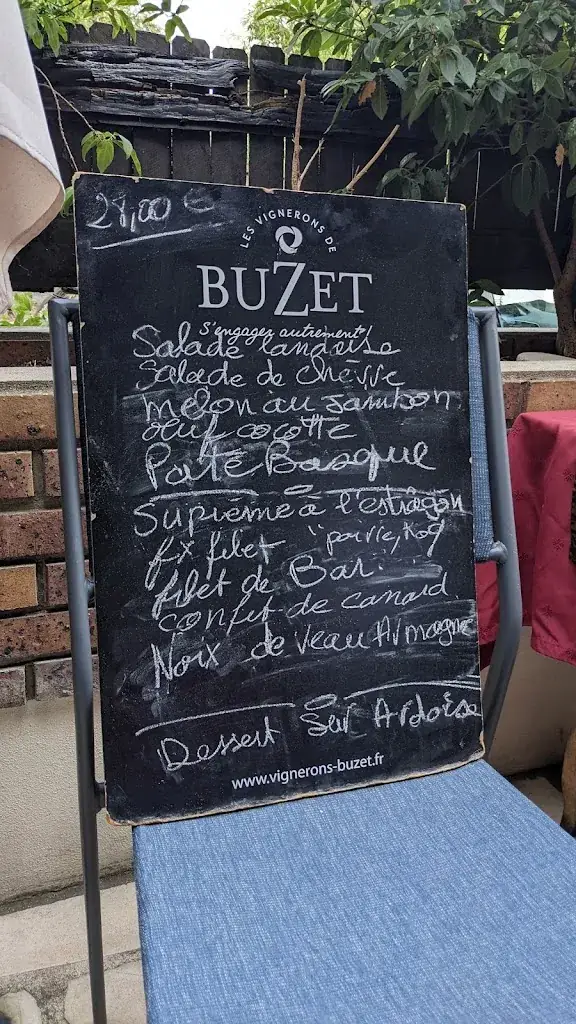 28,00 €
LES VIGNERONS DE
BUZET
s'engagez autrement!
Salade landaise
Salade de chèvre
melon au jambon
oeuf cocotte
Paté Basque
Suprème à l'estragon
fx filet "poivre,
filet de Bar
confit de canard
Noix de veau Armagnac
Dessert Sur Ardoise
www.vignerons-buzet.fr